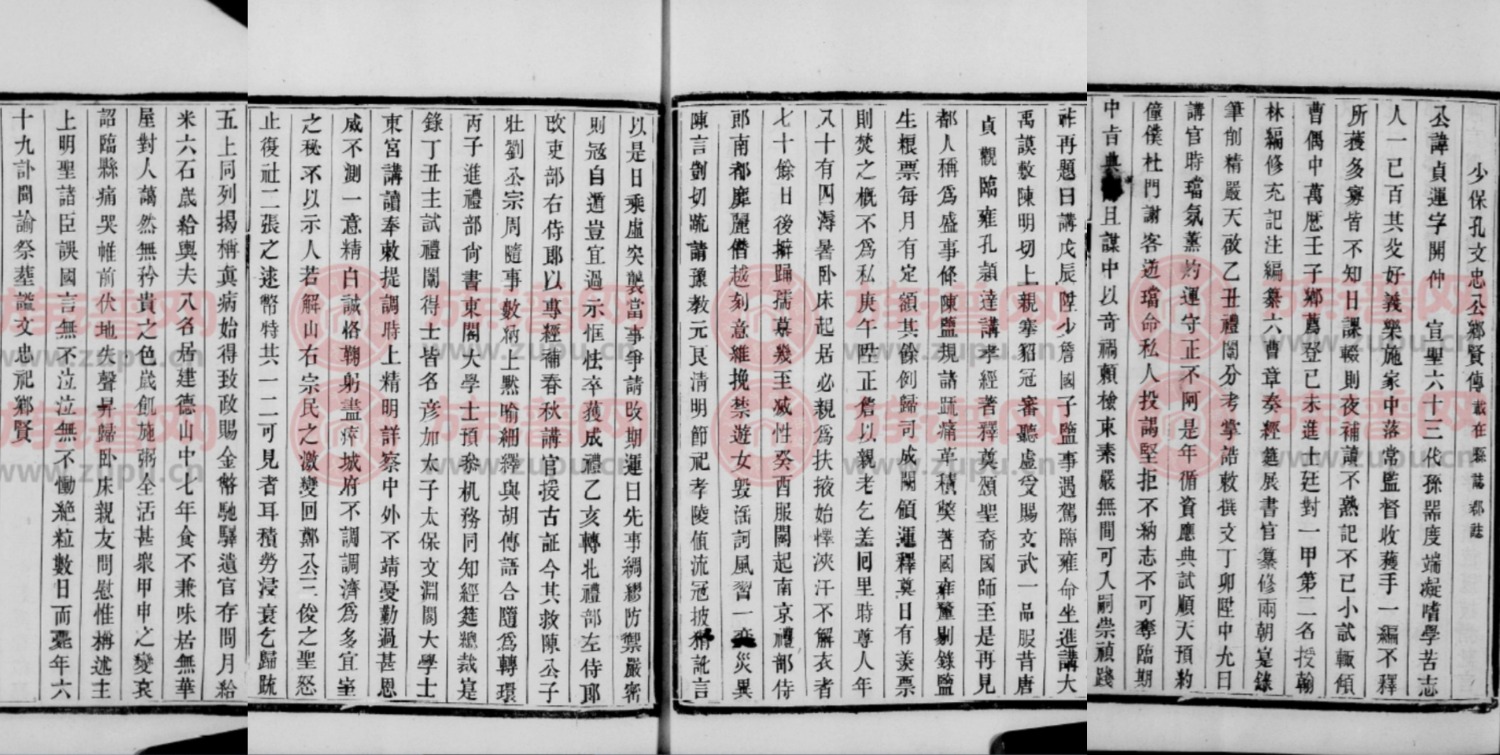 少保孔文忠公鄉賢傳載在縣誌郡誌
公諱貞運字開仲 宣聖六十三代孫器度端凝嗜學苦志
人一已百其父好義樂施家中落常監督收穫手一編不釋
所獲多寡皆不知日課輟則夜補讀不熟記不已小試輒傾
曹偶中萬曆壬子鄉薦登已未進士廷對一甲第二名授翰
林編修充記注編纂六曹章奏經筵展書官纂修兩朝寔錄
筆削精嚴天啟乙丑禮闈分考掌誥敕撰文丁卯陞中允日
講官時璫氛薰灼運守正不阿是年循資應典試順天預約
僮僕杜門謝客逆璫命私人投謁堅拒不納志不可奪臨期
中旨典 且謀中以奇禍賴檢束素嚴無間可入嗣崇禎踐
祚再題日講戊辰陞少詹國子監事遇駕臨雍命坐進講大
禹謨敷陳明切上親搴貂冠審聽虛受賜文武一品服昔唐
貞觀臨雍孔頴達講孝經著釋奠頌聖裔國師至是再見
都人稱爲盛事條陳監規諸疏痛革積獘著國雍釐剔錄監
生積票每月有定額其餘例歸司成關領運釋奠日有羨票
則焚之概不爲私庚午陞正詹以親老乞差囘里時尊人年
八十有四溽暑卧床起居必親爲扶掖始懌浹汗不解衣者
七十餘日後擗踊孺慕幾至滅性癸酉服闋起南京禮部侍
郎南都靡麗僭越刻意維挽禁遊女毀淫祠風習一變災異
陳言剴切疏請豫教元良清明節祀孝陵値流冠披猖訛言
以是日乘虛突襲當事爭請改期運曰先事綢繆防禦嚴密
則冦自遁豈宜過示恇怯卒獲成禮乙亥轉北禮部左侍郎
改吏部右侍郎以專經補春秋講官援古証今其救陳公子
壯劉公宗周隨事敷納上黙喻細繹與胡傳語合隨爲轉環
丙子進禮部尚書東閣大學士預叅机務同知經筵總裁寔
錄丁丑主試禮闈得士皆名彥加太子太保文淵閣大學士
東宮講讀奉敕提調時上精明詳察中外不靖憂勤過甚恩
威不測一意精白誠恪鞠躬盡瘁城府不調調濟爲多宜室
之秘不以示人若解山右宗民之激變回鄭公三俊之聖怒
止復社二張之逮幣特共一二可見者耳積勞浸衰乞歸疏
五上同列揭稱眞病始得致政賜金幣馳驛遣官存問月給
米六石歲給輿夫八名居建德山中七年食不兼味居無華
屋對人藹然無矜貴之色歲飢施粥全活甚衆甲申之變哀
詔臨縣痛哭帷前伏地失聲舁歸卧床親友問慰惟稱述主
上明聖諸臣誤國言無不泣泣無不慟絶粒數日而薨年六
十九訃聞諭祭葬謚文忠祀鄉賢